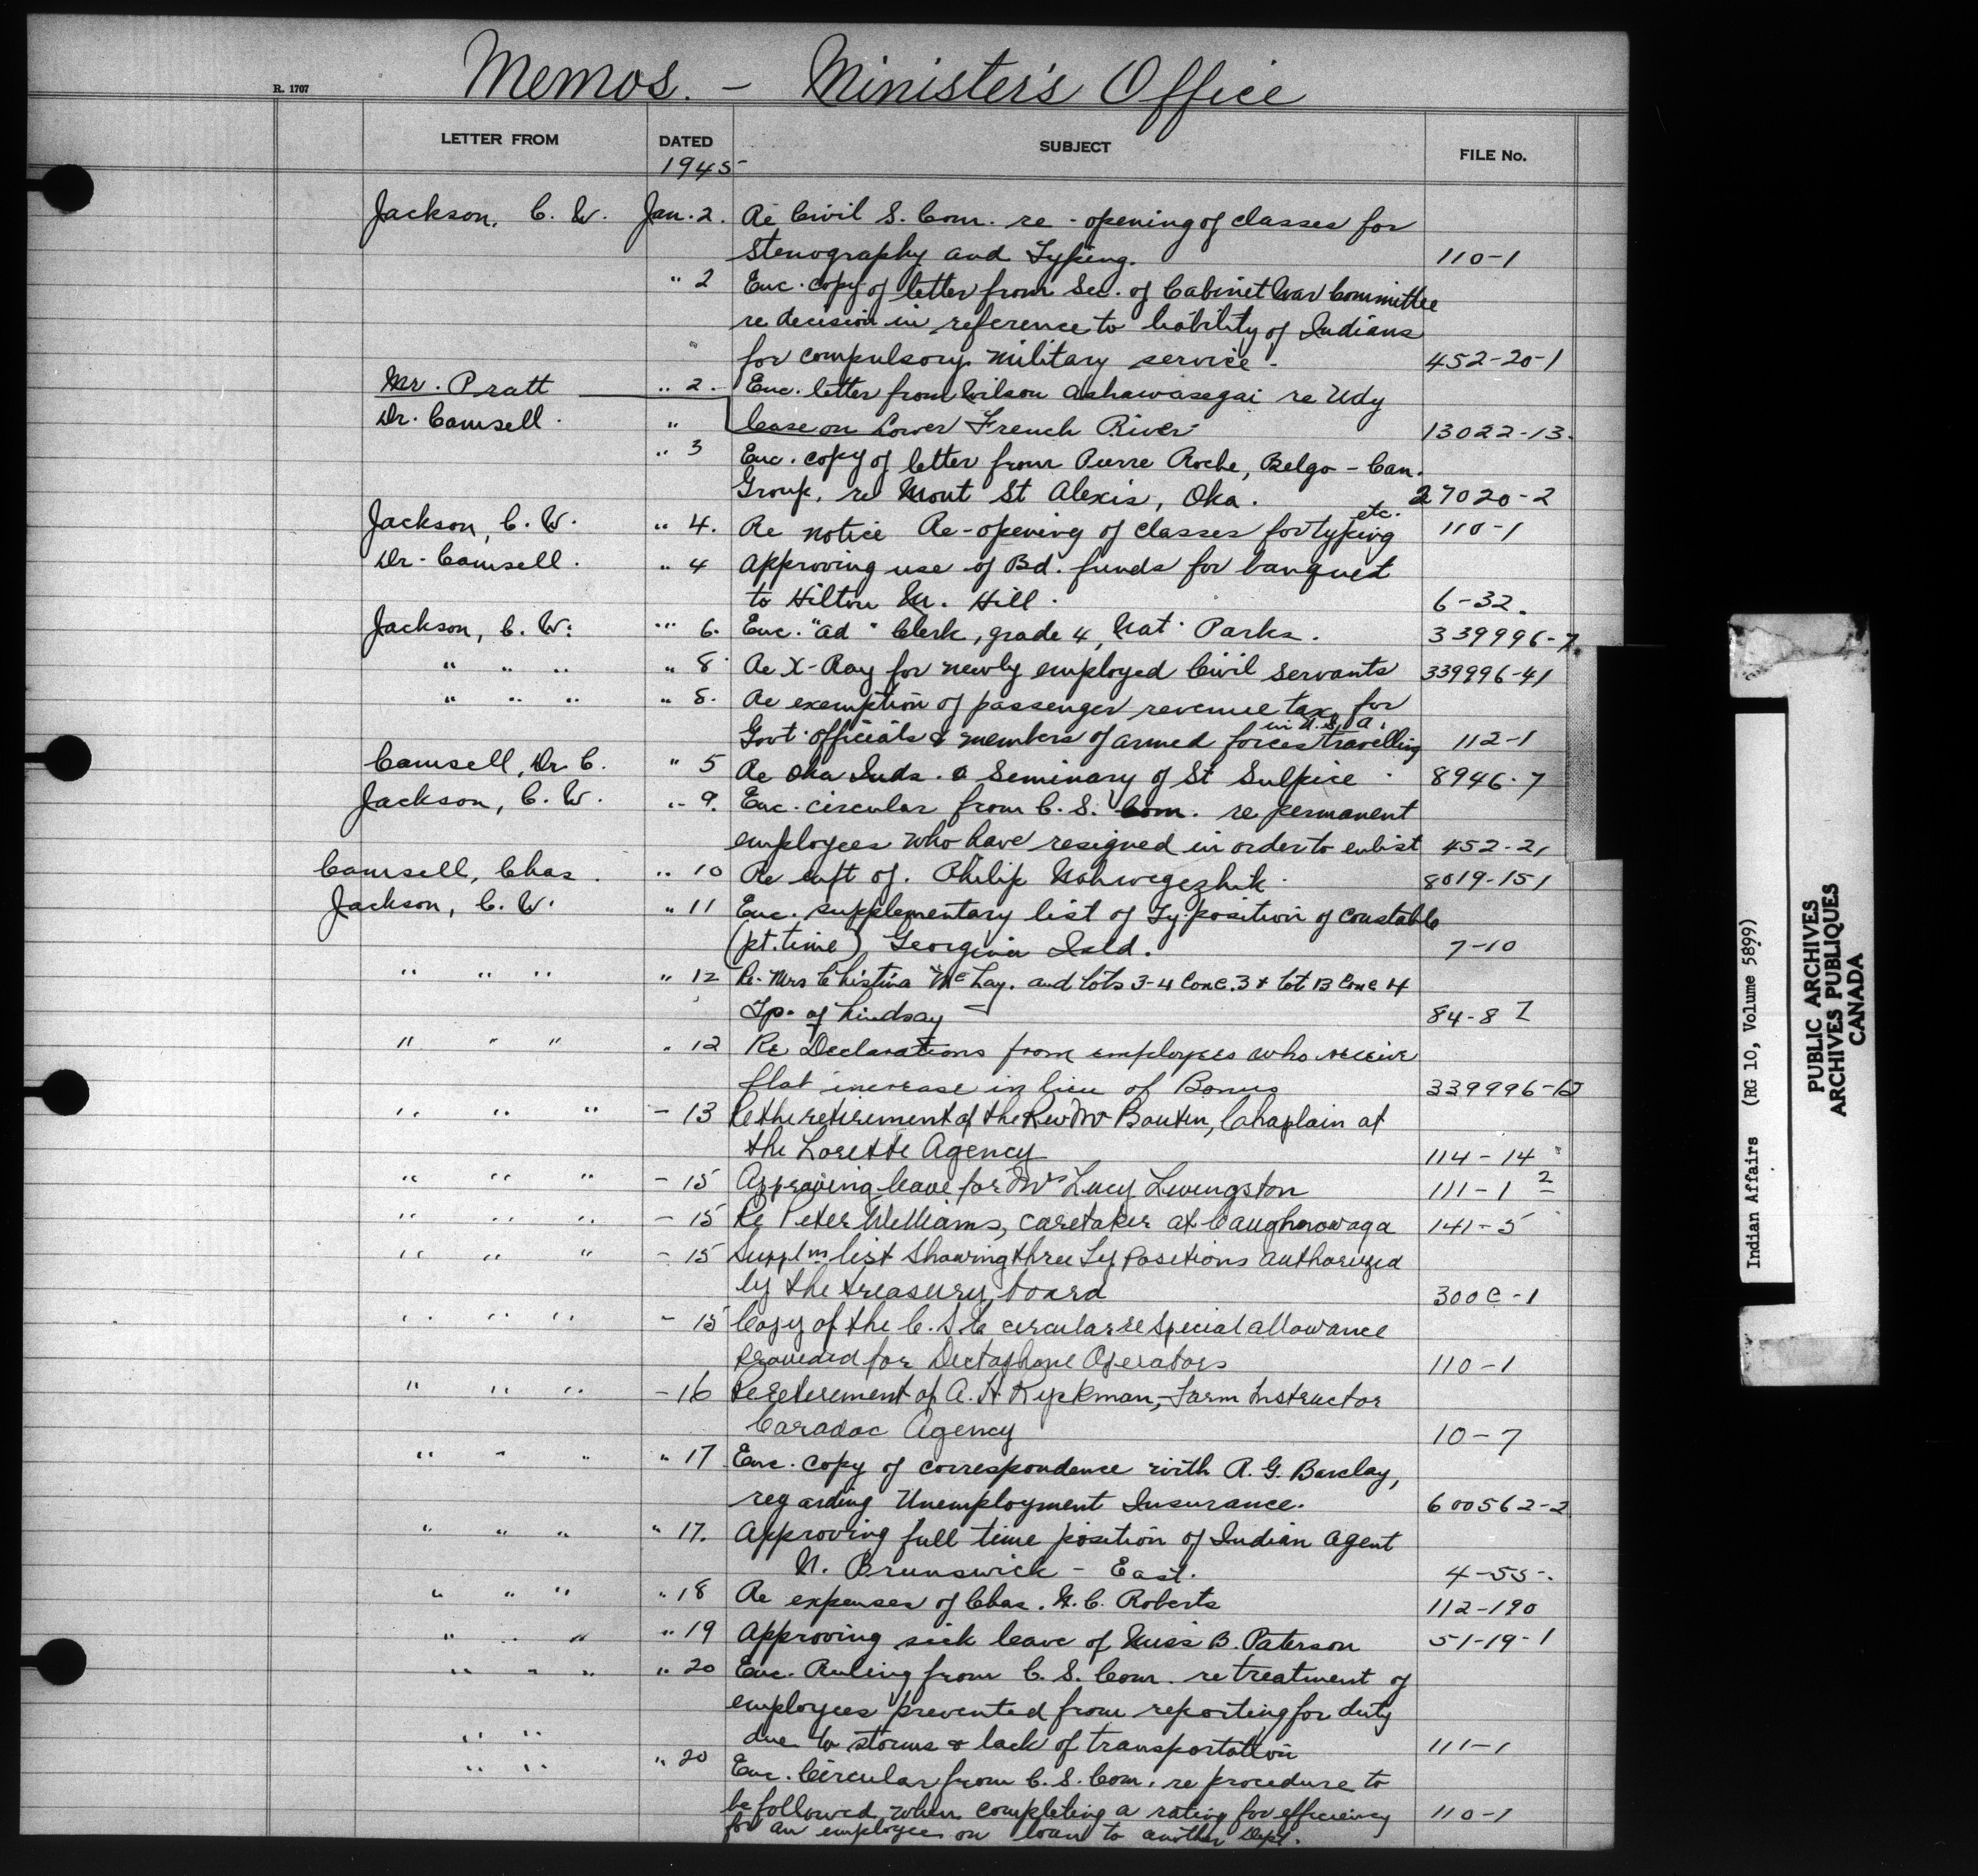 Memos. - Minister's Office
R. 1707
LETTER FROM DATED SUBJECT FILE No.
1945
Jackson, C. W. Jan. 2. Re Civil S. Com. re-opening of classes for
Stenography and Typing. 110-1
" 2 Enc. copy of letter from Sec. of Cabinet War Committee
re decision in reference to liability of Indians
for compulsory military service. 452-20-1
Mr. Pratt " 2. Enc. letter from Wilson Ashawasegai re Udy
Dr. Camsell. " lease on Lower French River 13022-13.
" 3 Enc. copy of letter from Pierre Roche, Belgo-Can.
Group, re Mont St Alexis, Oka. 27020-2
Jackson, C. W. " 4. Re notice Re-opening of classes for typing etc. 110-1
Dr. Camsell. " 4 Approving use of Bd. funds for banquet
to Hilton M. Hill. 6-32.
Jackson, C. W. " 6. Enc. "ad" Clerk, grade 4, Nat. Parks. 339996-7.
" " " " 8 Re X-Ray for newly employed Civil Servants 339996-41
" " " " 8. Re exemption of passenger revenue tax for
Govt. officials & members of armed forces travelling in U.S.A. 112-1
Camsell, Dr C. " 5 Re Oka Inds. & Seminary of St Sulpice 8946-7
Jackson, C. W. " 9. Enc. circular from C. S. Com. re permanent
employees who have resigned in order to enlist 452-21
Camsell, Chas. " 10 Re enft of. Philip Nahwegezhik. 8019-151
Jackson, C. W. " 11 Enc. supplementary list of Ty. position of constable
(pt. time) Georgina Isld. 7-10
" " " " 12 Re- Mrs Christina McLay. and Lots 3-4 Conc. 3 & Lot 13 Conc 4
Tp. of Lindsay 84-87
" " " " 12 Re Declarations from employees who receive
flat increase in lieu of Bonus 339996-12
" " " - 13 Re the retirement of the Rev Mr Boutin, Chaplain at
the Lorette Agency 114-14
" " " - 15 Approving leave for Mrs Lucy Livingston 111-1 2
" " " - 15 Re Peter Williams, caretaker at Caughnawaga 141-5
" " " - 15 Supplm list showing three Ty positions authorized
by the treasury board 300C-1
" " " - 15 Copy of the C. S. C circular re special allowance
provided for Dictaphone Operators 110-1
" " " - 16 Re retirement of A. H Ryckman, Farm Instructor
Caradoc Agency 10-7
" " " " 17 Enc. copy of correspondence with R. G. Barclay,
regarding Unemployment Insurance. 600562-2
" " " " 17. Approving full time position of Indian Agent
N. Brunswick - East. 4-55-.
" " " " 18 Re expenses of Chas. G. C. Roberts 112-190
" " " " 19 Approving sick leave of Miss B. Paterson 51-19-1
" " " " 20 Enc. Ruling from C. S. Com. re treatment of
employees prevented from reporting for duty
" " due to storms & lack of transportation 111-1
" " " 20 Enc. Circular from C. S. Com. re procedure to
be followed when completing a rating for efficiency 110-1
for an employee on loan to another Dept.
Indian Affairs (RG 10, Volume 5899)
PUBLIC ARCHIVES
ARCHIVES PUBLIQUES
CANADA